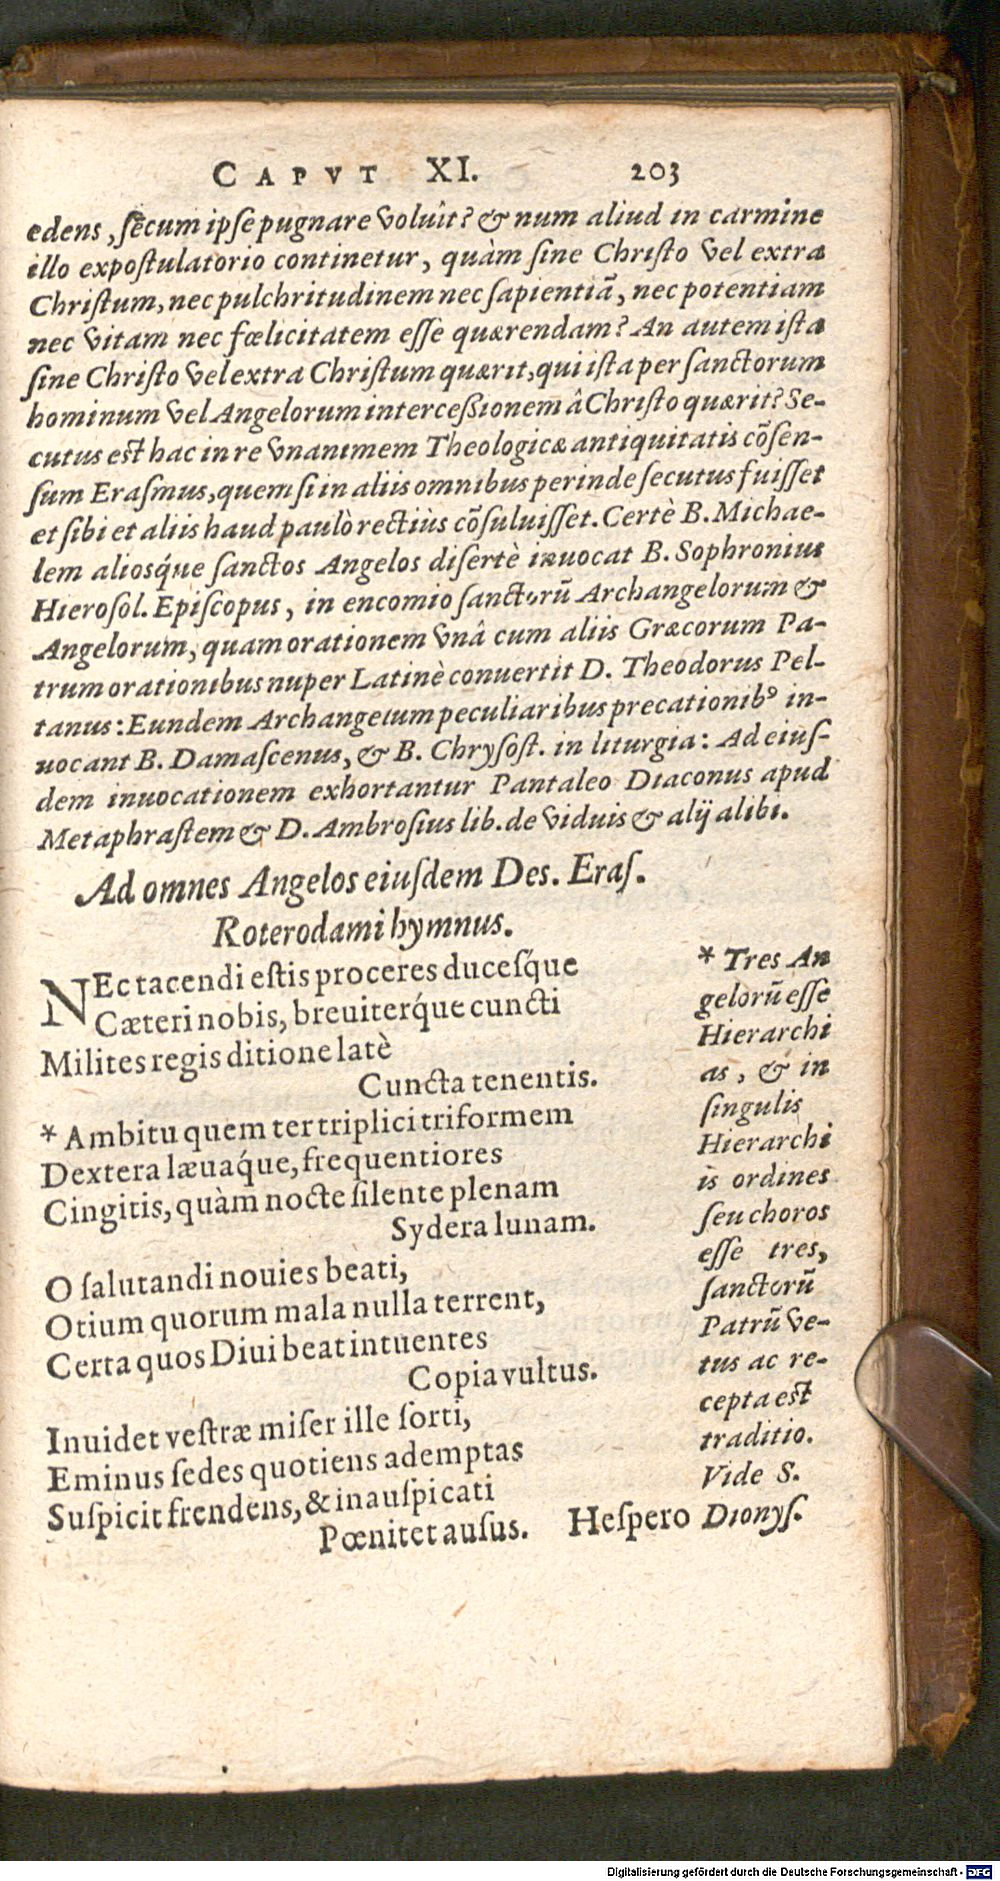 CAPVT XI. 203
edens, secum ipse pugnare voluit? & num aliud in carmine
illo expostulatorio continetur, quàm sine Christo vel extra
Christum, nec pulchritudinem nec sapientiã, nec potentiam
nec vitam nec fœlicitatem esse quærendam? An autem ista
sine Christo vel extra Christum quærit, qui ista per sanctorum
hominum vel Angelorum intercessionem â Christo quærit? Se-
cutus est hac in re vnanimem Theologicæ antiquitatis cõsen-
sum Erasmus, quem si in aliis omnibus perinde secutus fuisset
et sibi et aliis haud paulò rectiùs cõsuluisset. Certè B. Michae-
lem aliosq́ue sanctos Angelos disertè inuocat B. Sophronius
Hierosol. Episcopus, in encomio sanctorũ Archangelorum &
Angelorum, quam orationem vnâ cum aliis Græcorum Pa-
trum orationibus nuper Latinè conuertit D. Theodorus Pel-
tanus: Eundem Archangelum peculiaribus precationibꝰ in-
uocant B. Damascenus, & B. Chrysost. in liturgia: Ad eius-
dem inuocationem exhortantur Pantaleo Diaconus apud
Metaphrastem & D. Ambrosius lib. de viduis & alij alibi.
Ad omnes Angelos eiusdem Des. Eras.
Roterodami hymnus.
NEc tacendi estis proceres ducesq́ue
Cæteri nobis, breuiterq́ue cuncti
Milites regis ditione latè
Cuncta tenentis.
* Ambitu quem ter triplici triformem
Dextera læuaq́ue, frequentiores
Cingitis, quàm nocte silente plenam
Sydera lunam.
O salutandi nouies beati,
Otium quorum mala nulla terrent,
Certa quos Diui beat intuentes
Copia vultus.
Inuidet vestræ miser ille sorti,
Eminus sedes quotiens ademptas
Suspicit frendens, & inauspicati
Pœnitet ausus.
Hespero
* Tres An
gelorũ esse
Hierarchi
as, & in
singulis
Hierarchi
is ordines
seu choros
esse tres,
sanctorũ
Patrũ ve-
tus ac re-
cepta est
traditio.
Vide S.
Dionys.
Digitalisierung gefördert durch die Deutsche Forschungsgemeinschaft - DFG